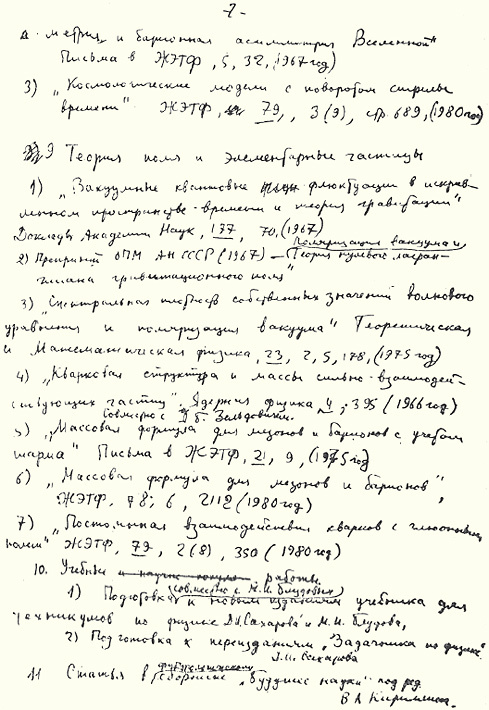 -2-
А. метрик и барионная асимметрия Вселенной"
Письма в ЖЭТФ, 5, 32, (1967 год)
3) „Космологические модели с поворотом стрелы
времени" ЖЭТФ, 79, , 3 (9), стр. 689, (1980 год)
9 Теория поля и элементарные частицы
1) „Вакуумные квантовые флюктуации в искрив-
ленном пространстве-времени и теория гравитации"
Доклады Академии Наук, 177, 70, (1967)
2) Препринт ОПМ АН СССР (1967) – Поляризация вакуума и
„Теория нулевого лагран-
жиана гравитационного поля"
3) „Спектральная плотность собственных значений волнового
уравнения и поляризация вакуума" Теоретическая
и Математическая физика, 23, 2, 5, 178, (1975 год)
4) „Кварковая структура и массы сильно-взаимодей-
ствующих частиц". Ядерная физика 4, 395 (1966 год)
Совместно с Я. Б. Зельдовичем.
5) „Массовая формула для мезонов и барионов с учетом
шарма" Письма в ЖЭТФ, 21, 9, (1975 год)
6) „Массовая формула для мезонов и барионов",
ЖЭТФ, 78, 6, 2112 (1980 год)
7) „Постоянная взаимодействия кварков с глюонным
полем" ЖЭТФ, 79, 2 (8), 350 (1980 год)
10. Учебные работы.
(совместно с М. И. Блудовым)
1) Подготовка к новым изданиям учебника для
техникумов по физике Д. И. Сахарова и М. И. Блудова,
2) Подготовка к переизданиям „Задачника по физике"
Д. И. Сахарова
11 Статья в футурологическом
сборнике „Будущее науки" под ред
В А Кириллина.